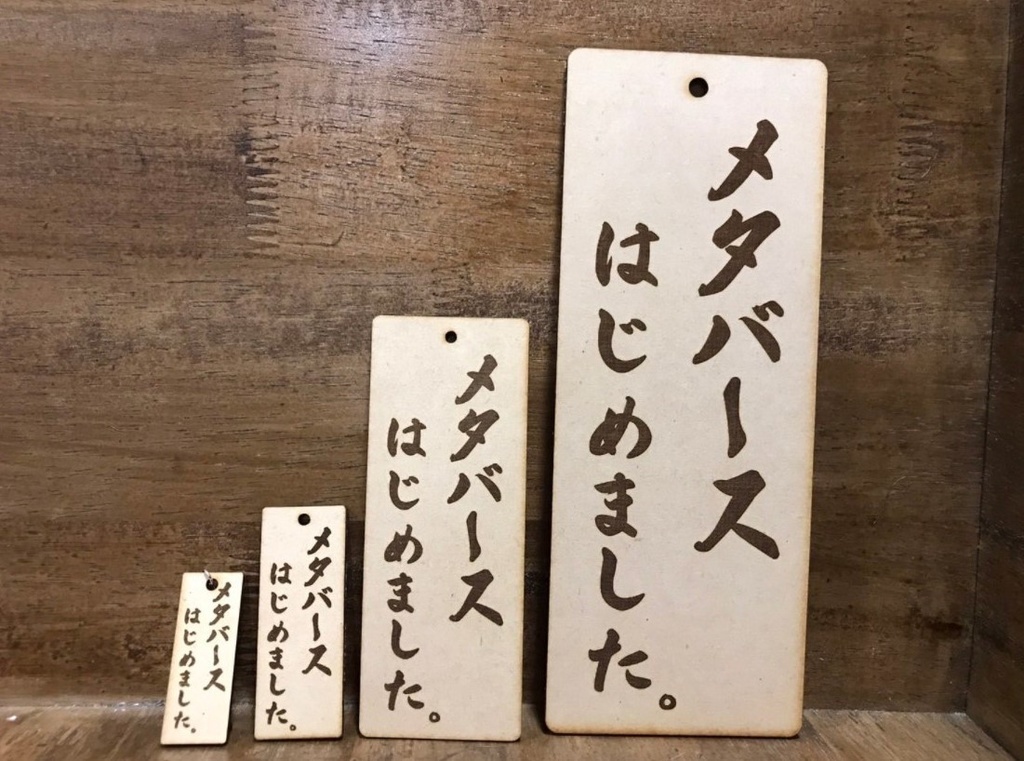 メタバース
はじめました。
メタバース
はじめました。
メタバース
はじめました。
メタバース
はじめました。